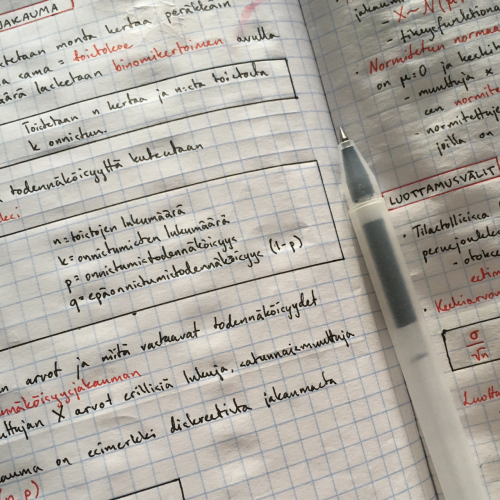 JAKAUMA
tetaan monta kertaa peräkkäin
sama = toistokoe
määrä lasketaan binomikertoimen avulla
Toistetaan n kertaa ja n:stä toistosta
k onnistuu.
todennäköisyyttä kutsutaan
n = toistojen lukumäärä
k = onnistumisten lukumäärä
p = onnistumistodennäköisyys
q = epäonnistumistodennäköisyys (1-p)
arvot ja mitä vastaavat todennäköisyydet
näköisyysjakauman
ttujan X arvot erillisiä lukuja, satunnaismuuttuja
auma on esimerkki diskreetistä jakaumasta
n, p)
X ~ N(μ,
- tiheysfunktion
• Normitetun normaa
on μ=0 ja keski
- muuttuja x
een normite
- normitettuj
joilla on
LUOTTAMUSVÄLIT
• Tilastollisissa
perusjoukko
- otokse
esti
• Keskiarvon
σ
√n
Luotta